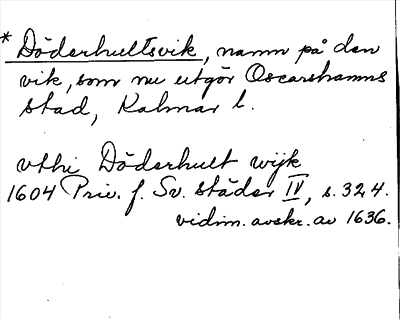 * Döderhultsvik, namn på den
vik, som nu utgör Oscarshamns
stad, Kalmar l.
vthi Döderhult wijk
1604 Priv. f. Sv. städer IV, s. 324.
vidim. avskr. av 1636.